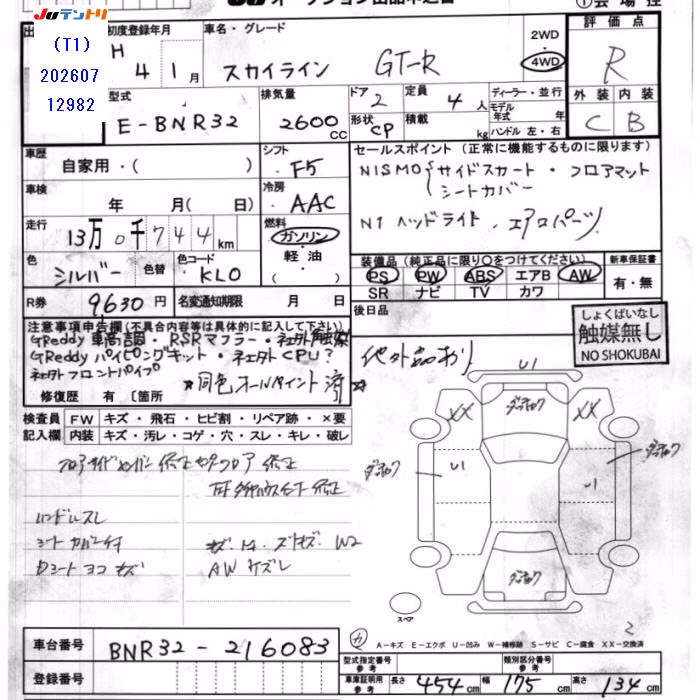 JU テントリ
(T1)
202607
12982
初度登録年月
H 4 1 月
車名・グレード
スカイライン GT-R
2WD
4WD
評価点
R
型式
E-BNR32
排気量
2600 CC
ドア
2
形状
CP
定員
4 人
積載
kg
ディーラー・並行
モデル
年式 年
ハンドル 左・右
外装 内装
C B
車歴
自家用・( )
シフト
F5
車検
年 月( 日)
冷房
AAC
走行
13万0千744km
燃料
ガソリン
軽油
( )
色
シルバー
色替
色コード
KL0
R券
9630円
名変通知期限 月 日
セールスポイント (正常に機能するものに限ります)
NISMO サイドスカート・フロアマット
シートカバー
N1 ヘッドライト . エアロパーツ
装備品 (純正品に限り○をつけてください)
PS PW ABS エアB AW
SR ナビ TV カワ
新車保証書
有・無
後日品
しょくばいなし
触媒無し
NO SHOKUBAI
注意事項申告欄(不具合内容等は具体的に記入して下さい)
GReddy 車高調・RSRマフラー・社外触媒
GReddy パイピングキット・社外CPU?
社外フロントパイプ
☆同色オールペイント済☆
修復歴 有 〔箇所
他外品あり
検査員
記入欄
FW キズ・飛石・ヒビ割・リペア跡・×要
内装 キズ・汚レ・コゲ・穴・スレ・キレ・破レ
ハンドルスレ
シートカバー付
Dシートヨコキズ
AW キズレ
U1
XX
XX
U1
スペア
2
車台番号
BNR32-216083
登録番号
A-キズ E-エクボ U-凹み W-補修跡 S-サビ C-腐食 XX-交換済
型式指定番号
参考
類別区分番号
参考
車庫証明用
参考
長さ 454 cm 幅 175 cm 高さ 134 cm